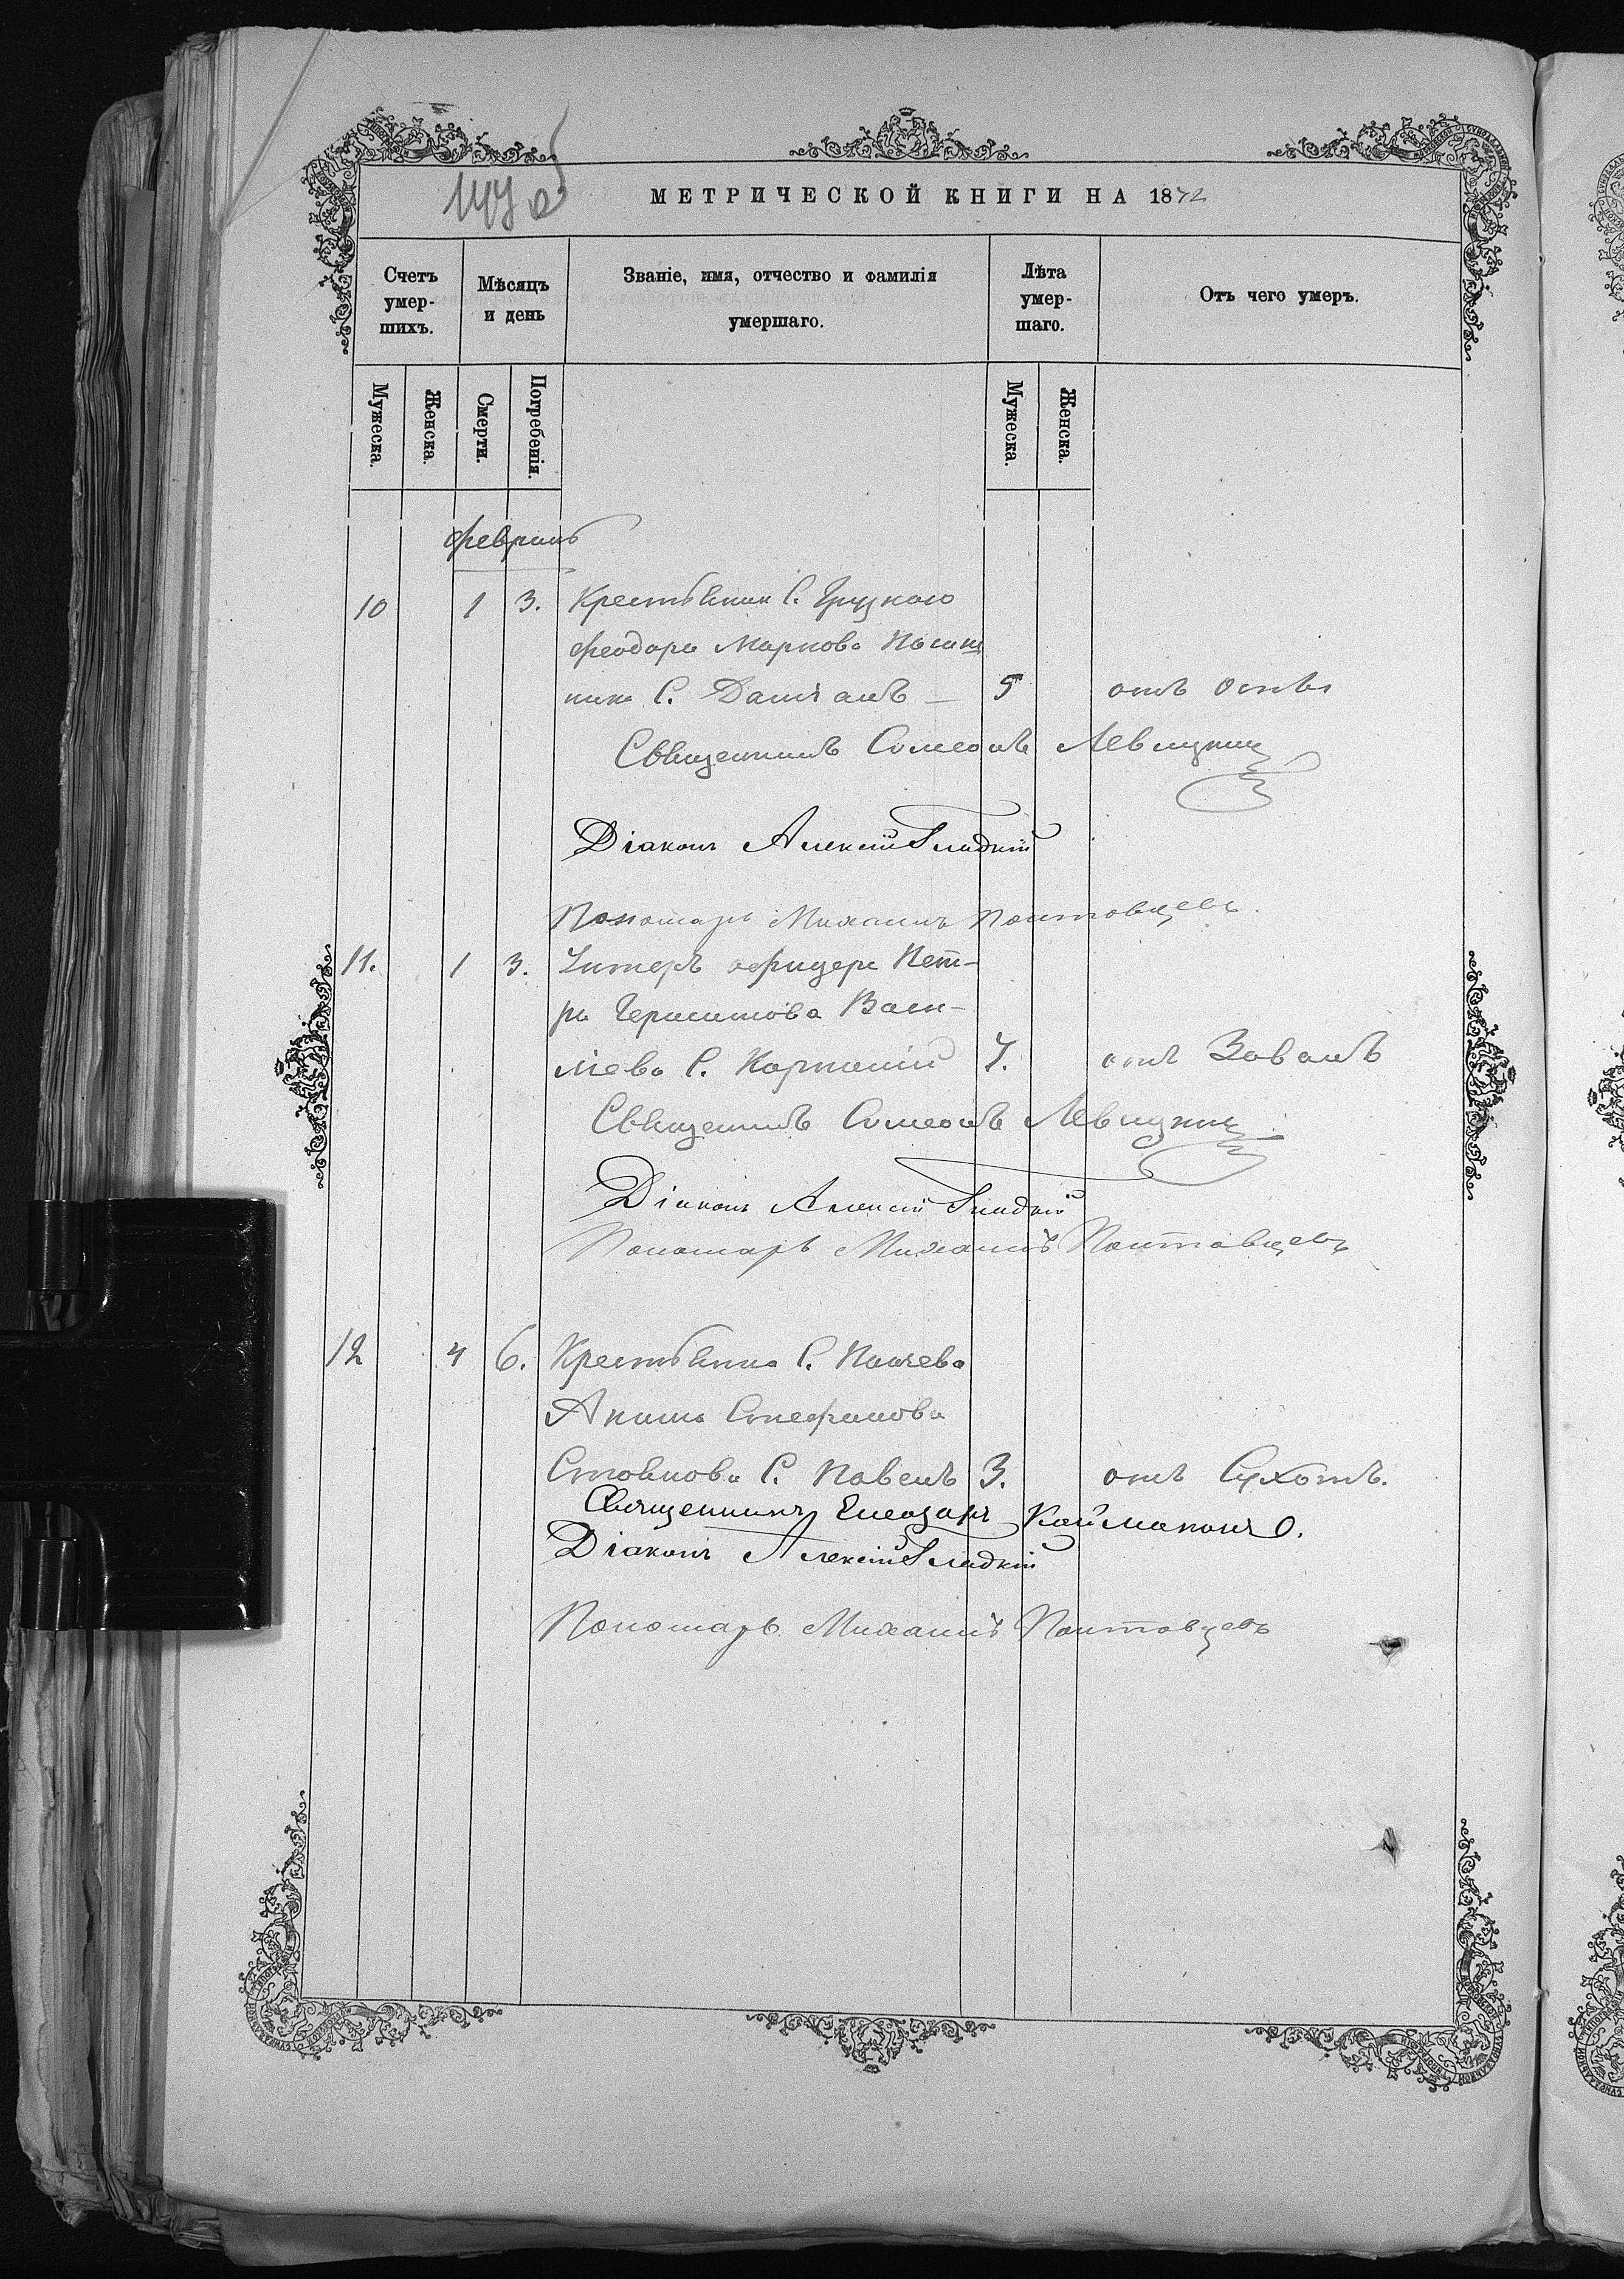 МЕТРИЧЕСКОЙ КНИГИ НА 1872
Счетъ умер-шихъ.
Мѣсяцъ и день
Званіе, имя, отчество и фамилія умершаго.
Лѣта умер-шаго.
Отъ чего умеръ.
Мужеска.
Женска.
Смерти.
Погребенія.
Мужеска.
Женска.
Февраль
10 1 3. Крестьянин С. Грузкаго
Феодора Маркова
ника С. Даніилъ — 5 отъ оспы
Священникъ Симеонъ Левицкій
Діаконъ Алексій Гладкій
Пономарь Михаилъ Полтовцевъ.
11. 1 3. Унтеръ офицера Пет-
ра Герасимова Васи-
лиева С. Корнилій 7. отъ Завалъ
Священникъ Симеонъ Левицкій
Діаконъ Алексій Гладкій
Пономарь Михаилъ Полтовцевъ
12 4 6. Крестьянина С.
Акима Стефанова
Стоянова С. Павелъ 3. отъ Сухотъ.
Священникъ Елеазаръ Каймаканъ.
Діаконъ Алексій Гладкій
Пономарь Михаилъ Полтовцевъ